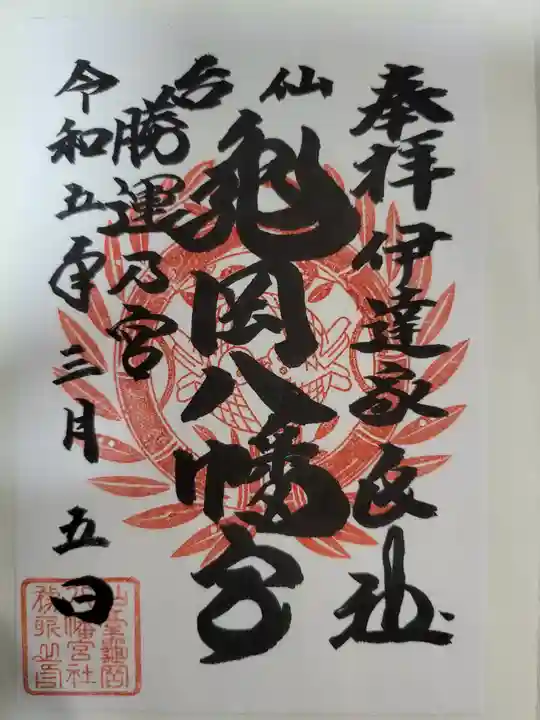 奉拝 伊達家氏社
仙台
亀岡八幡宮
勝運乃宮
令和五年三月五日
仙臺龜岡
八幡宮社
務所之印